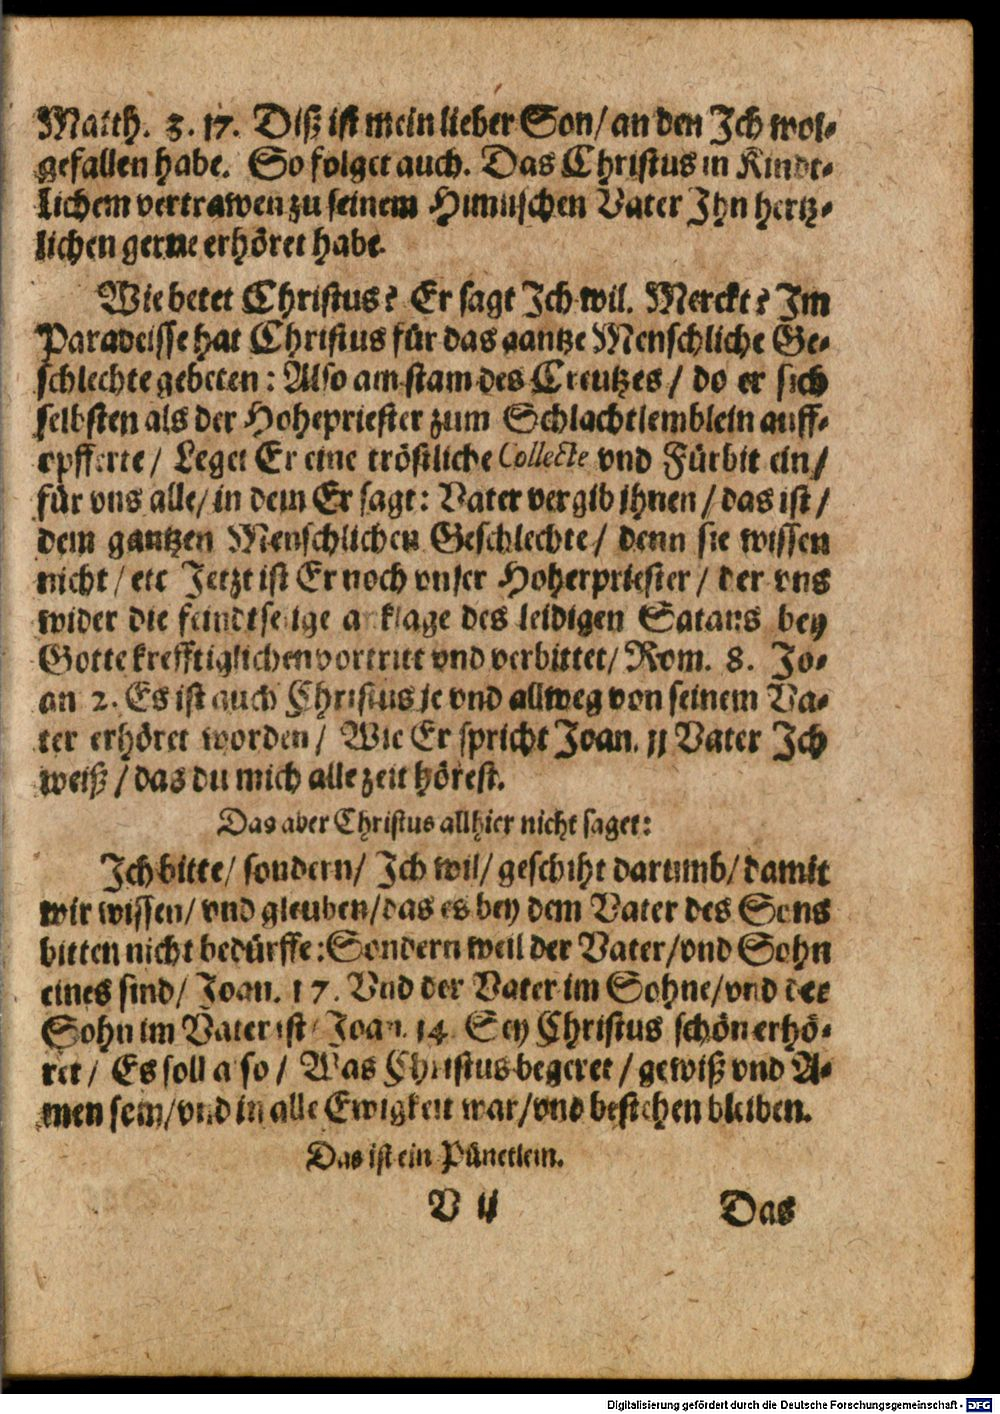 Matth. 3. 17. Diß ist mein lieber Son/ an den Ich wol-
gefallen habe. So folget auch. Das Christus in Kindt-
lichem vertrawen zu seinem Himlischen Vater Ihn hertz-
lichen gerne erhöret habe.
Wie betet Christus? Er sagt Ich wil. Merckt? Im
Paradeisse hat Christus für das gantze Menschliche Ge-
schlechte gebeten: Also am stam des Creutzes/ do er sich
selbsten als der Hohepriester zum Schlachtlemblein auff-
opfferte/ Leget Er eine tröstliche Collecte vnd Fürbit ein/
für vns alle/ in dem Er sagt: Vater vergib ihnen/ das ist/
dem gantzen Menschlichen Geschlechte/ denn sie wissen
nicht/ etc Jetzt ist Er noch vnser Hoherpriester/ der vns
wider die feindtselige anklage des leidigen Satans bey
Gotte krefftiglichen vortritt vnd verbittet/ Rom. 8. Jo-
an 2. Es ist auch Christus je vnd allweg von seinem Va-
ter erhöret worden/ Wie Er spricht Joan. 11 Vater Ich
weiß/ das du mich alle zeit hörest.
Das aber Christus allhier nicht saget:
Ich bitte/ sondern/ Ich wil/ geschiht darumb/ damit
wir wissen/ vnd gleuben/ das es bey dem Vater des Sons
bitten nicht bedürffe: Sondern weil der Vater/ vnd Sohn
eines sind/ Joan. 17. Vnd der Vater im Sohne/ vnd der
Sohn im Vater ist/ Joan. 14 Sey Christus schön erhö-
ret/ Es soll also/ Was Christus begeret/ gewiß vnd A-
men sein/ vnd in alle Ewigkeit war/ vnd bestehen bleiben.
Das ist ein Pünctlein.
V ij
Das
Digitalisierung gefördert durch die Deutsche Forschungsgemeinschaft - DFG